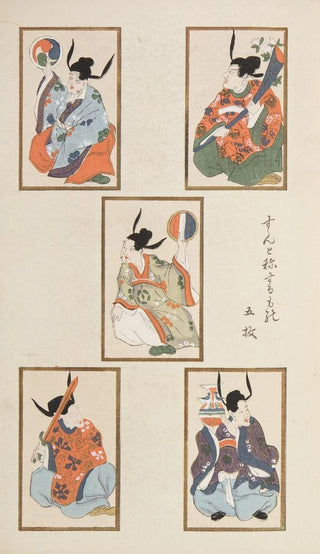 すんと称するもの
五枚